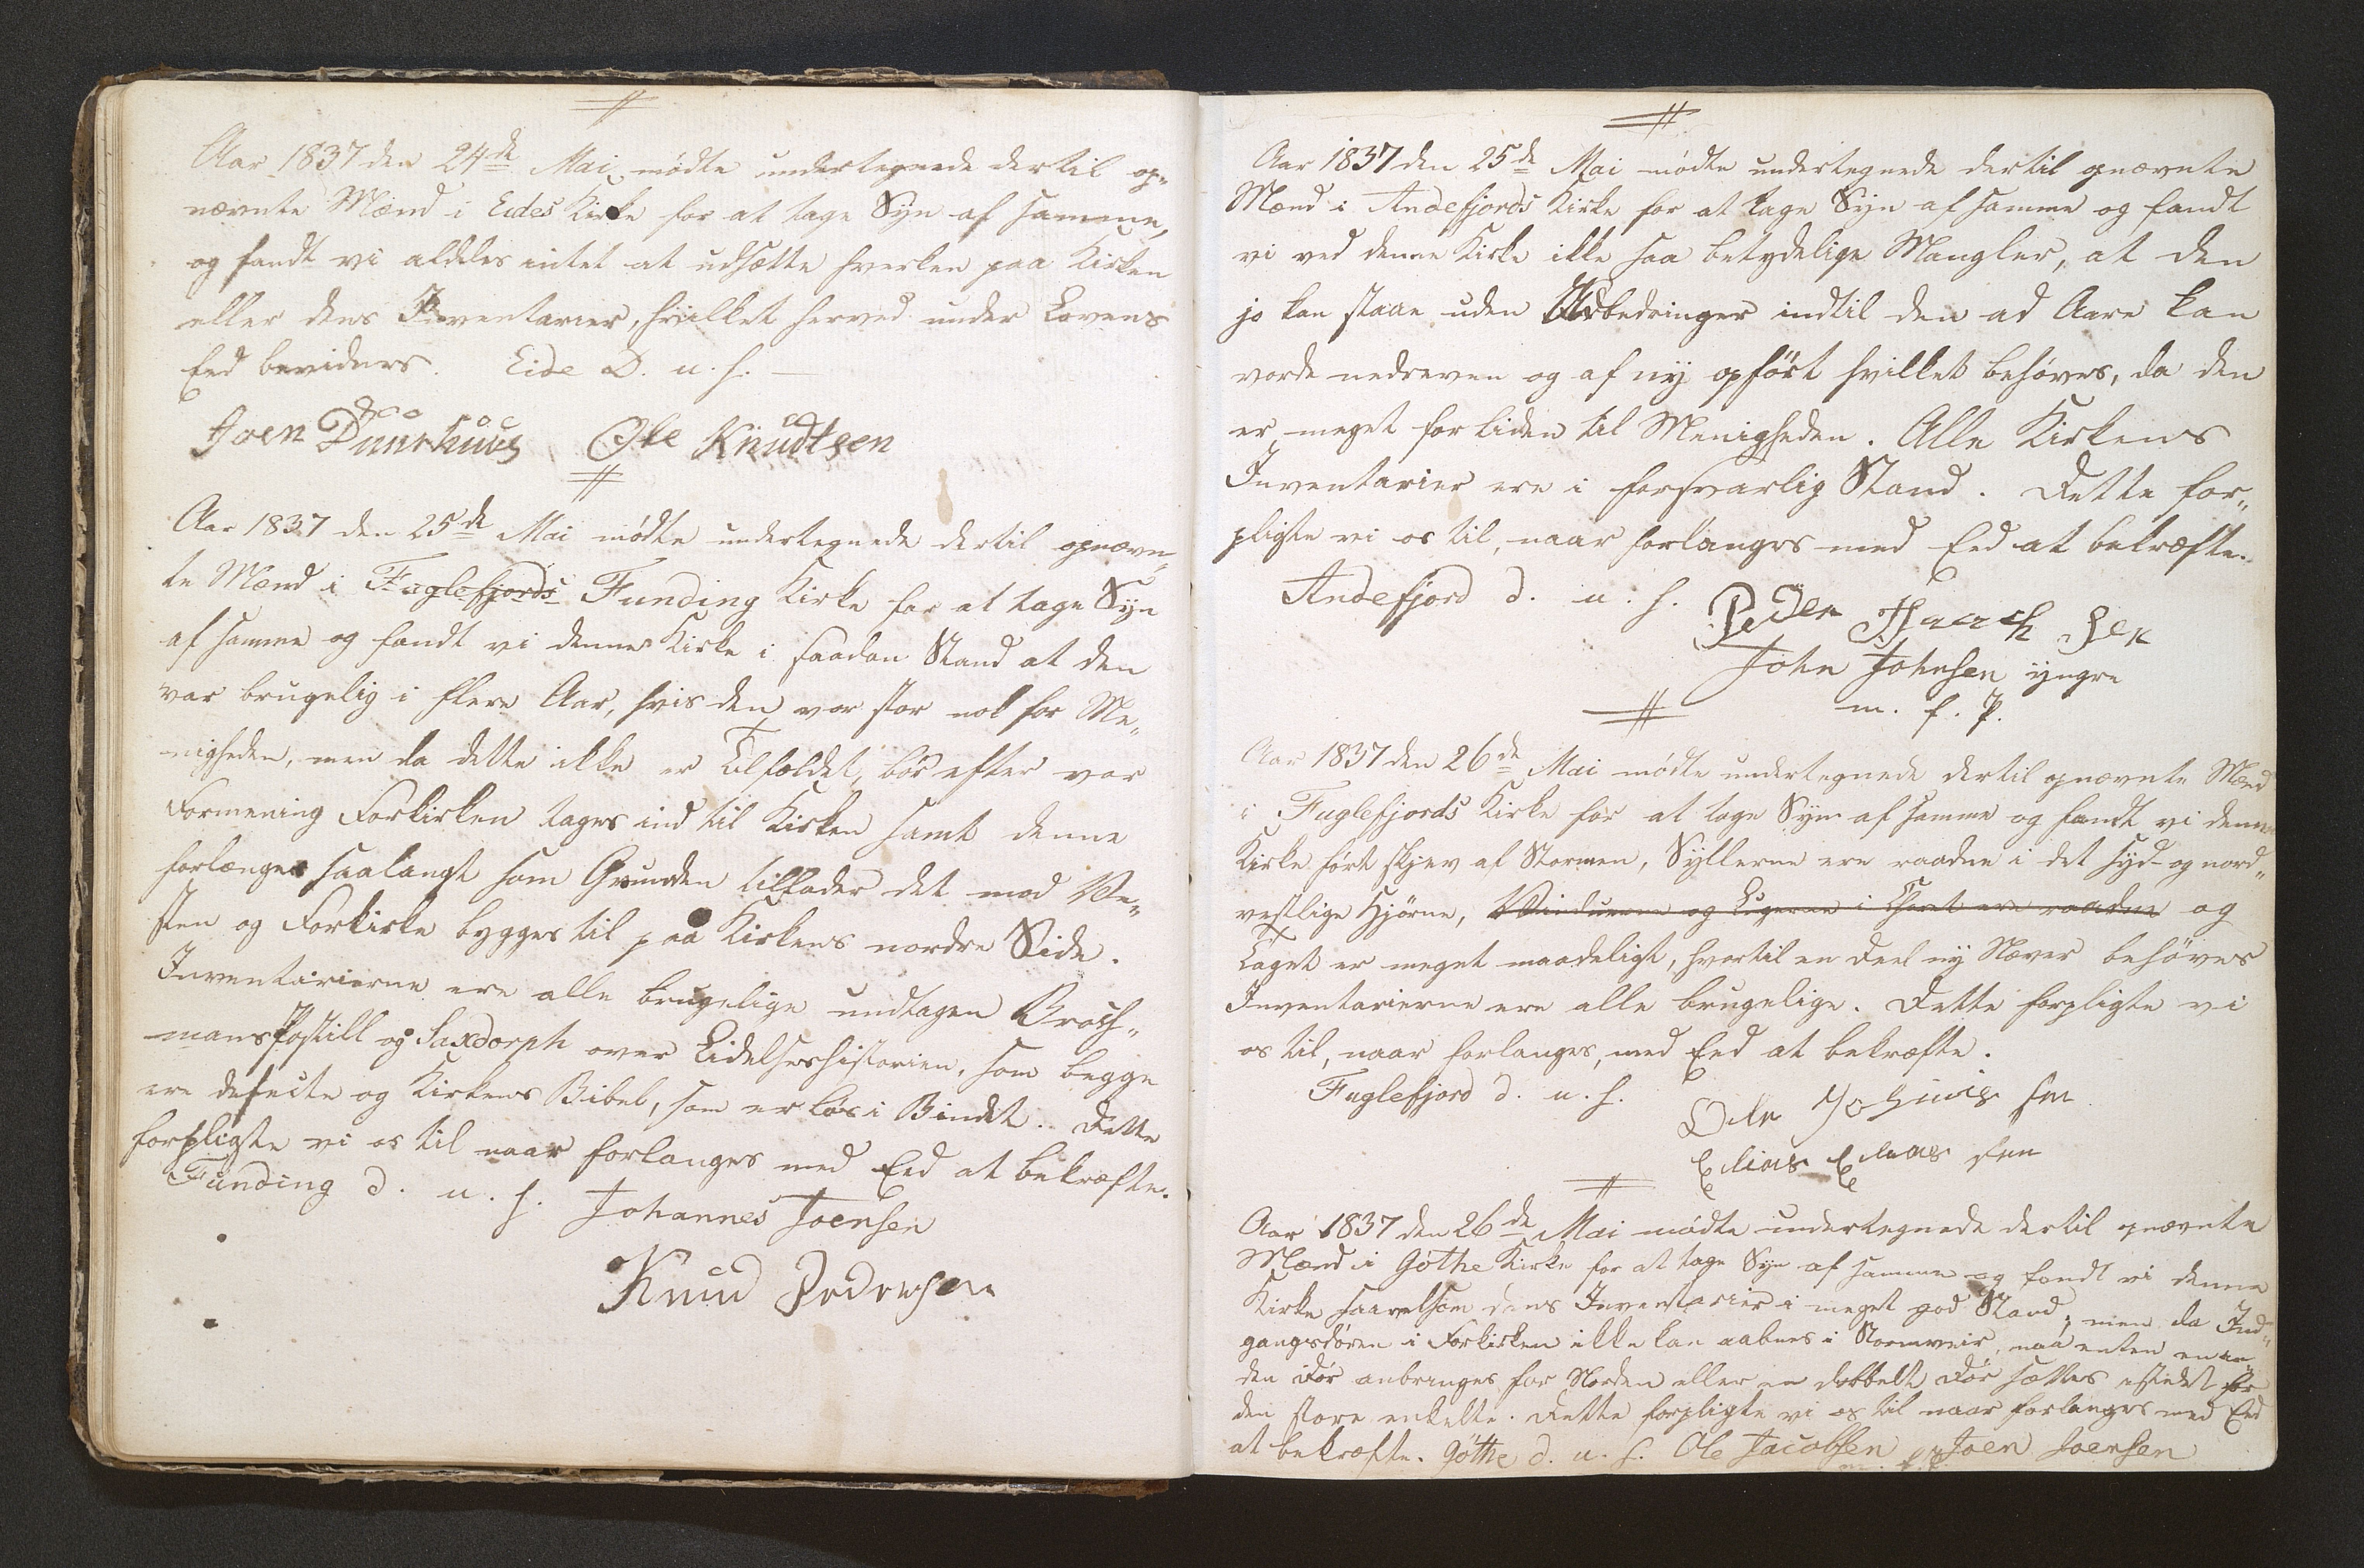 Aar 1837 den 24de Mai mødte undertegnede dertil op-
nævnte Mænd i Eides Kirke for at tage Syn af samme,
og fandt vi aldeles intet at udsætte hverken paa Kirken
eller dens Inventarier, hvilket herved under Lovens
Eed bevidnes. Eide D. u. s.
Joen Duurhuus Ole Knudtsen
Aar 1837 den 25de Mai mødte undertegnede dertil opnævn-
te Mænd i Fuglefjords Funding Kirke for at tage Syn
af samme og fandt vi denne Kirke i saadan Stand at den
var brugelig i flere Aar, hvis den var stor nok for Me-
nigheden, men da dette ikke er Tilfældet, bør efter vor
Formening Forkirken tages ind til Kirken samt denne
forlænges saalangt som Grunden tillader det mod Ve-
sten og Forkirke bygges til paa Kirkens nordre Side.
Inventarierne ere alle brugelige undtagen Broch-
mans Postill og Saxdorph over Lidelseshistorien, som begge
ere defecte og Kirkens Bibel, som er løs i Bindet. Dette
forpligte vi os til naar forlanges med Eed at bekræfte.
Funding d. u. s. Johannes Joensen
Knud Pedersen
Aar 1837 den 25de Mai mødte undertegnede dertil opnævnte
Mænd i Andefjords Kirke for at tage Syn af samme og fandt
vi ved denne Kirke ikke saa betydelige Mangler, at den
jo kan staae uden Udbedringer indtil den ad Aare kan
vorde nedreven og af ny opført hvilket behøves, da den
er meget for liden til Menigheden. Alle Kirkens
Inventarier ere i forsvarlig Stand. Dette for-
pligte vi os til, naar forlanges med Eed at bekræfte.
Andefjord d. u. s. Peder Hansen
John Johnsen yngre
m. f. P.
Aar 1837 den 26de Mai mødte undertegnede dertil opnævnte Mænd
i Fuglefjords Kirke for at tage Syn af samme og fandt vi denne
Kirke ført skjev af Stormen, Syllerne ere raadne i det syd- og nord-
vestlige Hjørne, Vinduerne og Lugerne i Choret ere raadne og
Taget er meget maadeligt, hvortil en Deel ny Næver behøves
Inventarierne ere alle brugelige. Dette forpligte vi
os til, naar forlanges, med Eed at bekræfte.
Fuglefjord d. u. s.
Ole sen
Elias Elias sen
Aar 1837 den 26de Mai mødte undertegnede dertil opnævnte
Mænd i Gøthe Kirke for at tage Syn af samme og fandt vi denne
Kirke saavelsom dens Inventarier i meget god Stand, men da Ind-
gangsdøren i Forkirken ikke kan aabnes i Stormveir, maa enten en an-
den Dør anbringes for Norden eller en dobbelt Dør sættes istedet for
den store enkelte. Dette forpligte vi os til naar forlanges med Eed
at bekræfte. Gøthe d. u. s. Ole Jacobsen Joen Joensen
m. f. P.